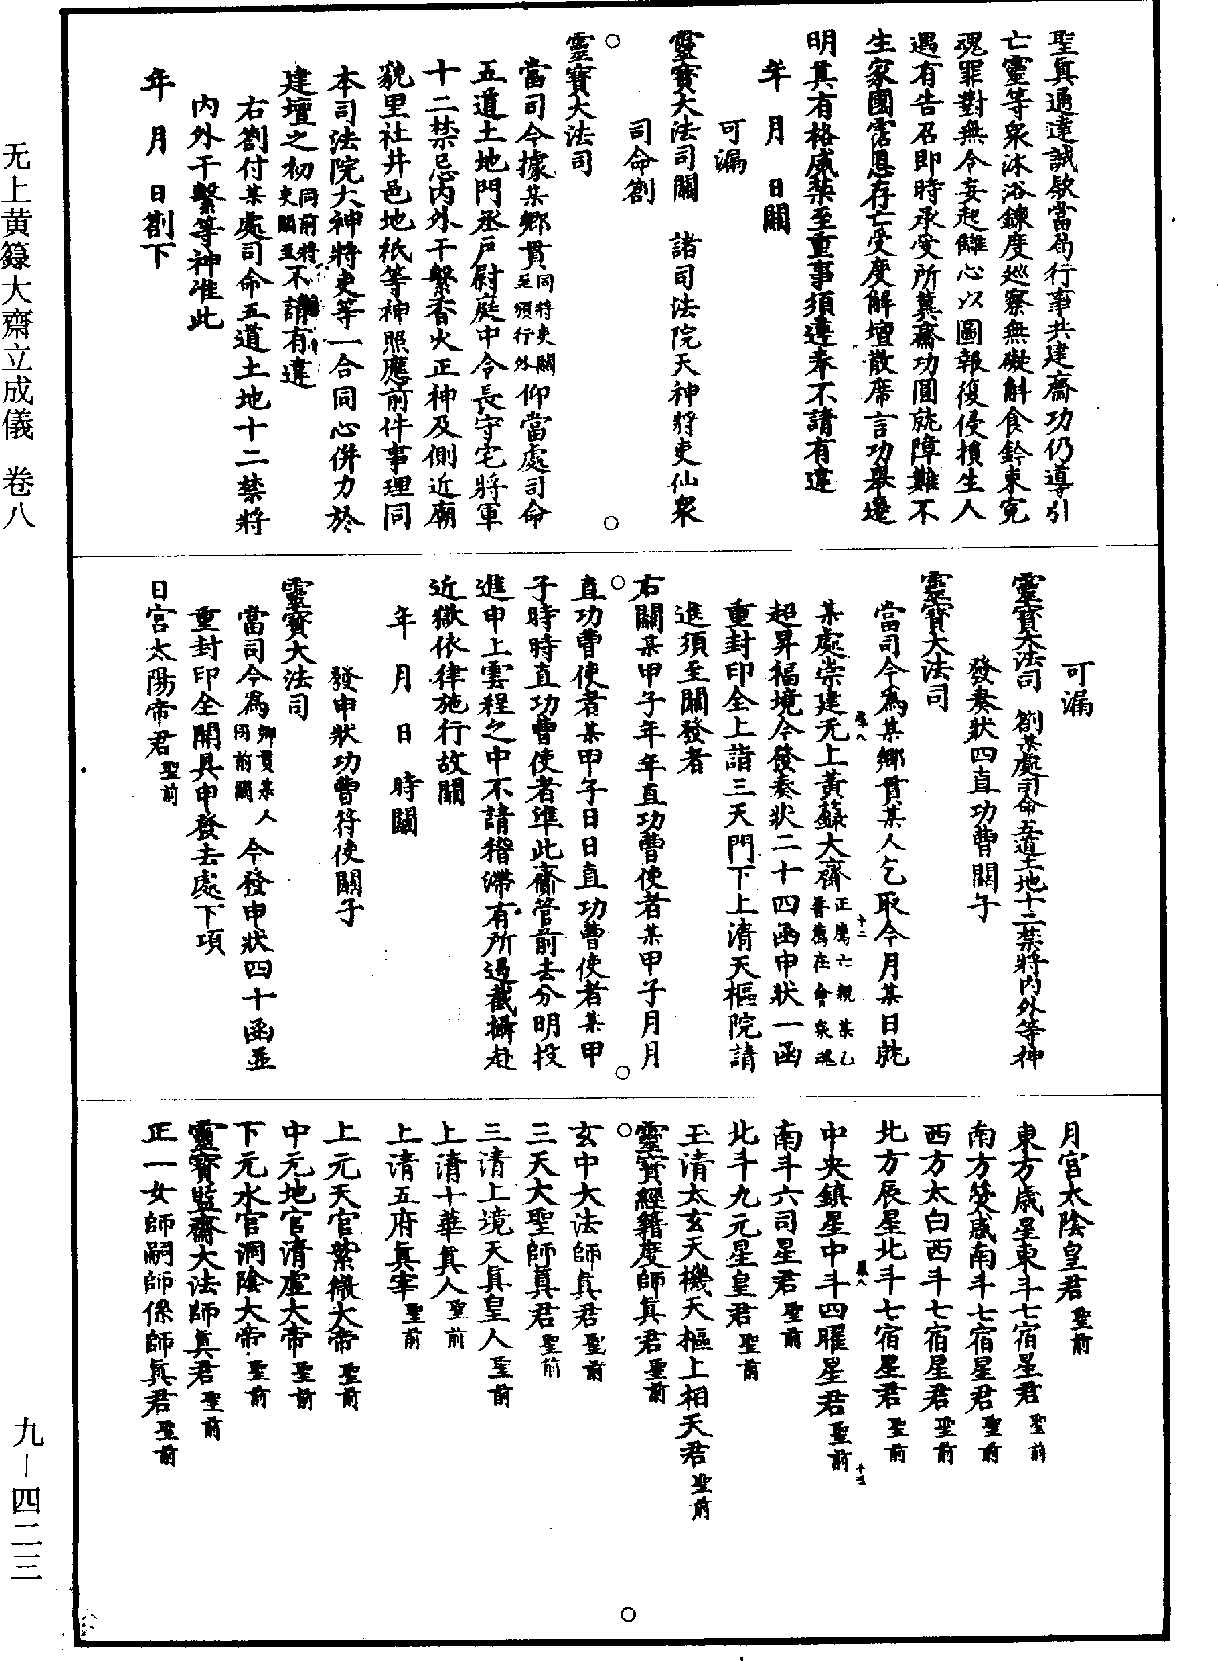 聖真通達誠欵當局行事共建齋功仍導引
亡靈等眾沐浴鍊度巡察無礙斛食鈐束寃
魂罪對無令妄起讎心以圖報復侵損生人
遇有告召即時承受所冀齋功圓就障難不
生家國霑恩存亡受度解壇散席言功舉遷
明其有格咸藥至重事須遵奉不請有違
年 月 日關
可漏
靈寶大法司關 諸司法院天神將吏仙眾
司命劄
靈寶大法司
當司今據某鄉貫同將吏關至須行外仰當處司命
五道土地門丞戶尉庭中令長守宅將軍
十二禁忌內外干繫香火正神及側近廟
貌里社井邑地祇等神照應前件事理同
本司法院大神將吏等一合同心併力於
建壇之初同前將吏關至不請有違
右劄付某處司命五道土地十二禁將
內外干繫等神准此
年 月 日劄下
可漏
靈寶大法司 劄某處司命五道土地十二禁將內外等神
發奏狀四直功曹關子
靈寶大法司
當司今為某鄉貫某人乞取今月某日就
某處崇建无上黃籙大齋正薦六親某乙普薦在會眾魂
超昇福境今發奏狀二十四函申狀一函
重封印全上詣三天門下上清天樞院請
進須至關發者
右關某甲子年年直功曹使者某甲子月月
直功曹使者某甲子日日直功曹使者某甲
子時時直功曹使者準此齋管前去分明投
進申上雲程之中不請稽滯有所遇截攝赴
近獄依律施行故關
年 月 日 時關
發申狀功曹符使關子
靈寶大法司
當司今為鄉貫某人同前關今發申狀四十函並
重封印全開具申發去處下項
日宮太陽帝君聖前
月宮太陰皇君聖前
東方歲星東斗七宿星君聖前
南方熒惑南斗七宿星君聖前
西方太白西斗七宿星君聖前
北方辰星北斗七宿星君聖前
中央鎮星中斗四曜星君聖前
南斗六司星君聖前
北斗九元星皇君聖前
玉清太玄天機天樞上相天君聖前
靈寶經籍度師真君聖前
玄中大法師真君聖前
三天大聖師真君聖前
三清上境天真皇人聖前
上清十華真人聖前
上清五府真宰聖前
上元天官紫微大帝聖前
中元地官清虛大帝聖前
下元水官洞陰大帝聖前
靈寶監齋大法師真君聖前
正一女師嗣師係師真君聖前
无上黄籙大齋立成儀 卷八
九－四二三